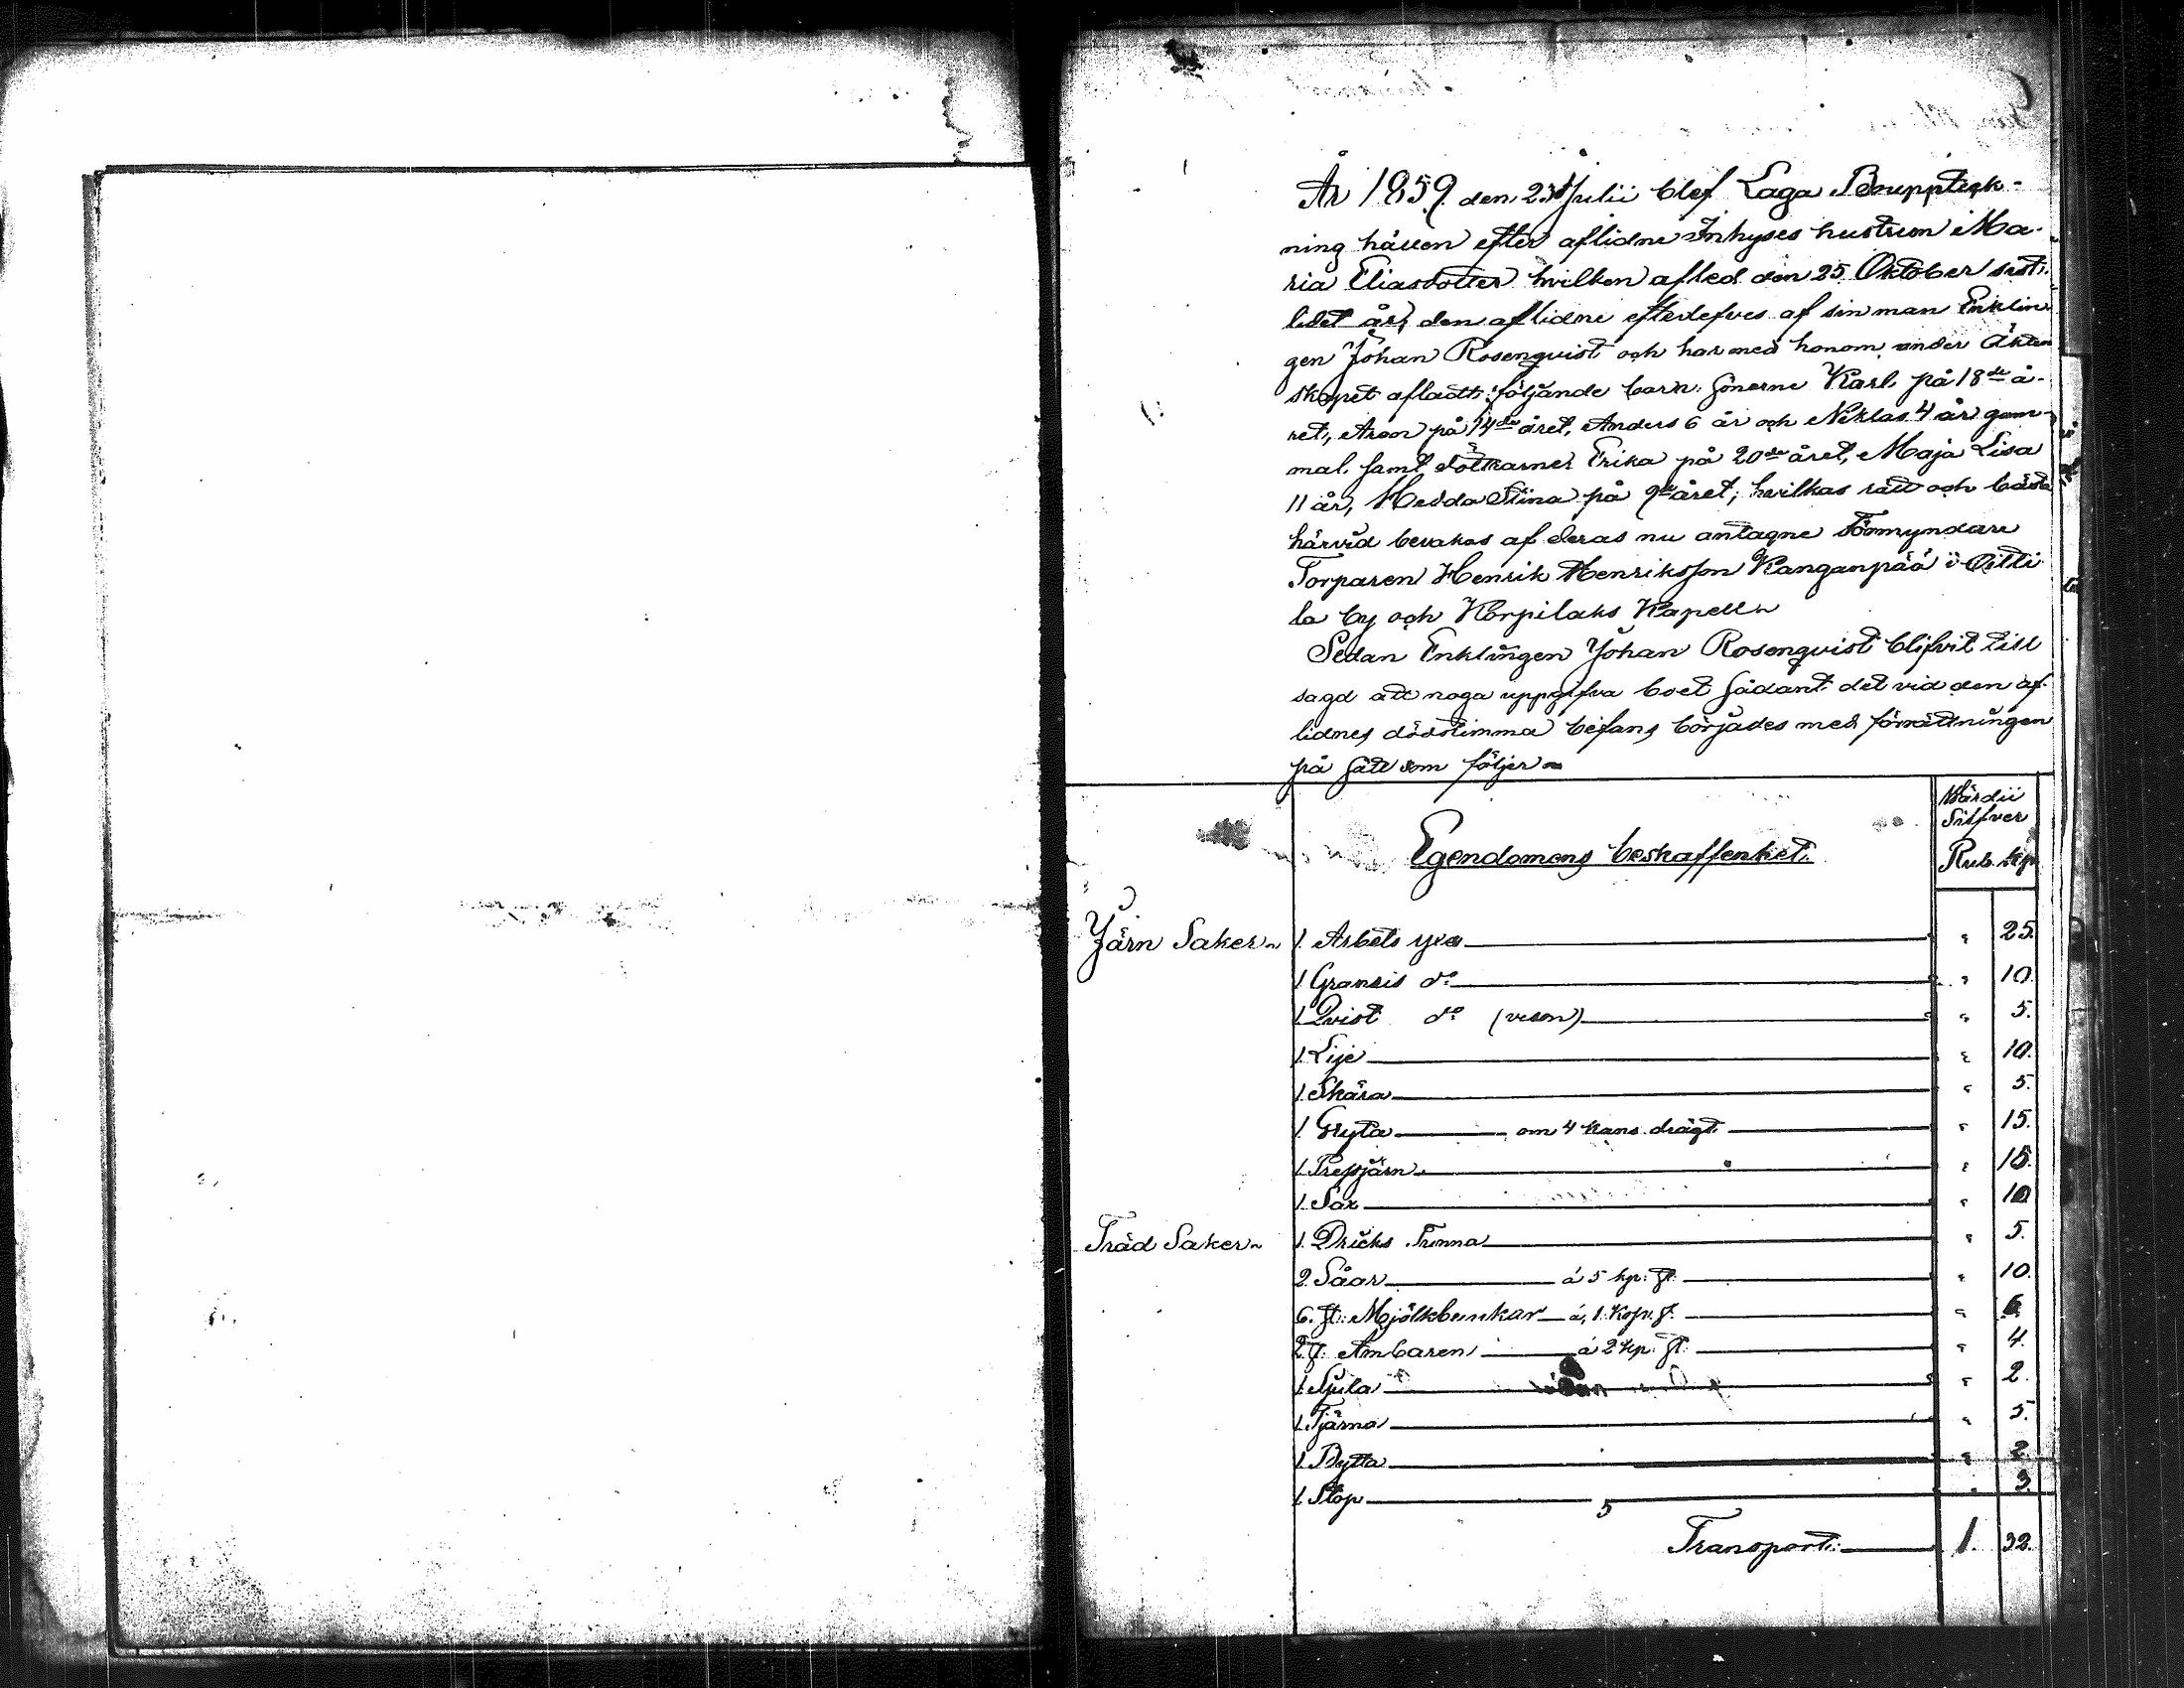 År 1859 den 23 Julii blef Laga Bouppteck-
ning hållen efter aflidne Inhyses hustrun Ma-
ria Eliasdotter hvilken afled den 25 Oktober sist-
lidet år, den aflidne efterlefves af sin man Enklin-
gen Johan Rosenqvist och har med honom under Äkten-
skapet afladt följande barn: Sönerne Karl på 18de å-
ret, Aron på 14de året, Anders 6 år och Niklas 4 år gam-
mal, samt döttrarne Erika på 20de året, Maja Lisa
11 år, Hedda Stina på 9de året; hvilkas rätt och bästa
härvid bevakas af deras nu antagne Förmyndare
Torparen Henrik Henriksson Kanganpää i Oitti-
la by och Korpilaks Kapell
Sedan Enklingen Johan Rosenqvist blifvit till-
sagd att noga uppgifva boet sådant det vid den af-
lidnes dödstimma befans börjades med förrättningen
på sätt som följer
Egendomens beskaffenhet.
Wärdii
Silfver
Rub. kp
Järn Saker 1. Arbets yxa " 25.
1 Gransis do " 10.
1 Qvist do " 5.
1. Lije " 10.
1. Skära " 5.
1. Gryta om 4 kans drägt " 15.
1. Pressjärn " 15.
1. Sax " 10
Träd Saker 1. Dricks Tunna " 5.
2. Såar á 5 kp. st. " 10.
6. st. Mjölkbunkar á 1. Kop. st. " 6.
2 st. Ambaren á 2 kp. st. " 4.
1. " 2.
1. Tjärna " 5.
1. Bytta " 2.
1. Stop " 3.
Transport: 1. 32.